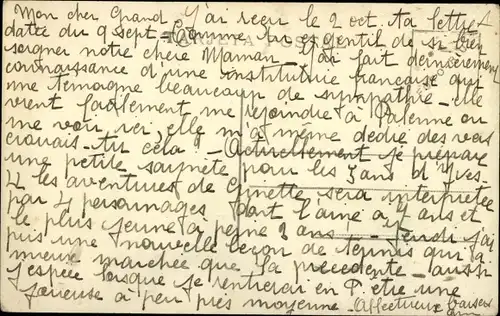 Mon cher Grand, J'ai reçu le 2 oct. ta lettre
datée du 9 sept - Comme tu es gentil de si bien
TARJETA
soigner notre chère Maman - J'ai fait dernièrement
connaissance d'une institutrice française qui
me témoigne beaucoup de sympathie - elle
vient facilement me rejoindre à Palermo ou
me voir ici, elle m'a même dédié des vers
croirais-tu cela? - Actuellement je prépare
une petite saynète pour les 3 ans d'Yves.
les aventures de Ginette sera interprétée
par 4 personnages dont l'aîné a 7 ans et
le plus jeune à peine 2 ans. - Jeudi j'ai
pris une nouvelle leçon de tennis qui a
mieux marchée que la précédente - aussi
j'espère lorsque je rentrerai en F. être une
joueuse à peu près moyenne - Affectueux baisers